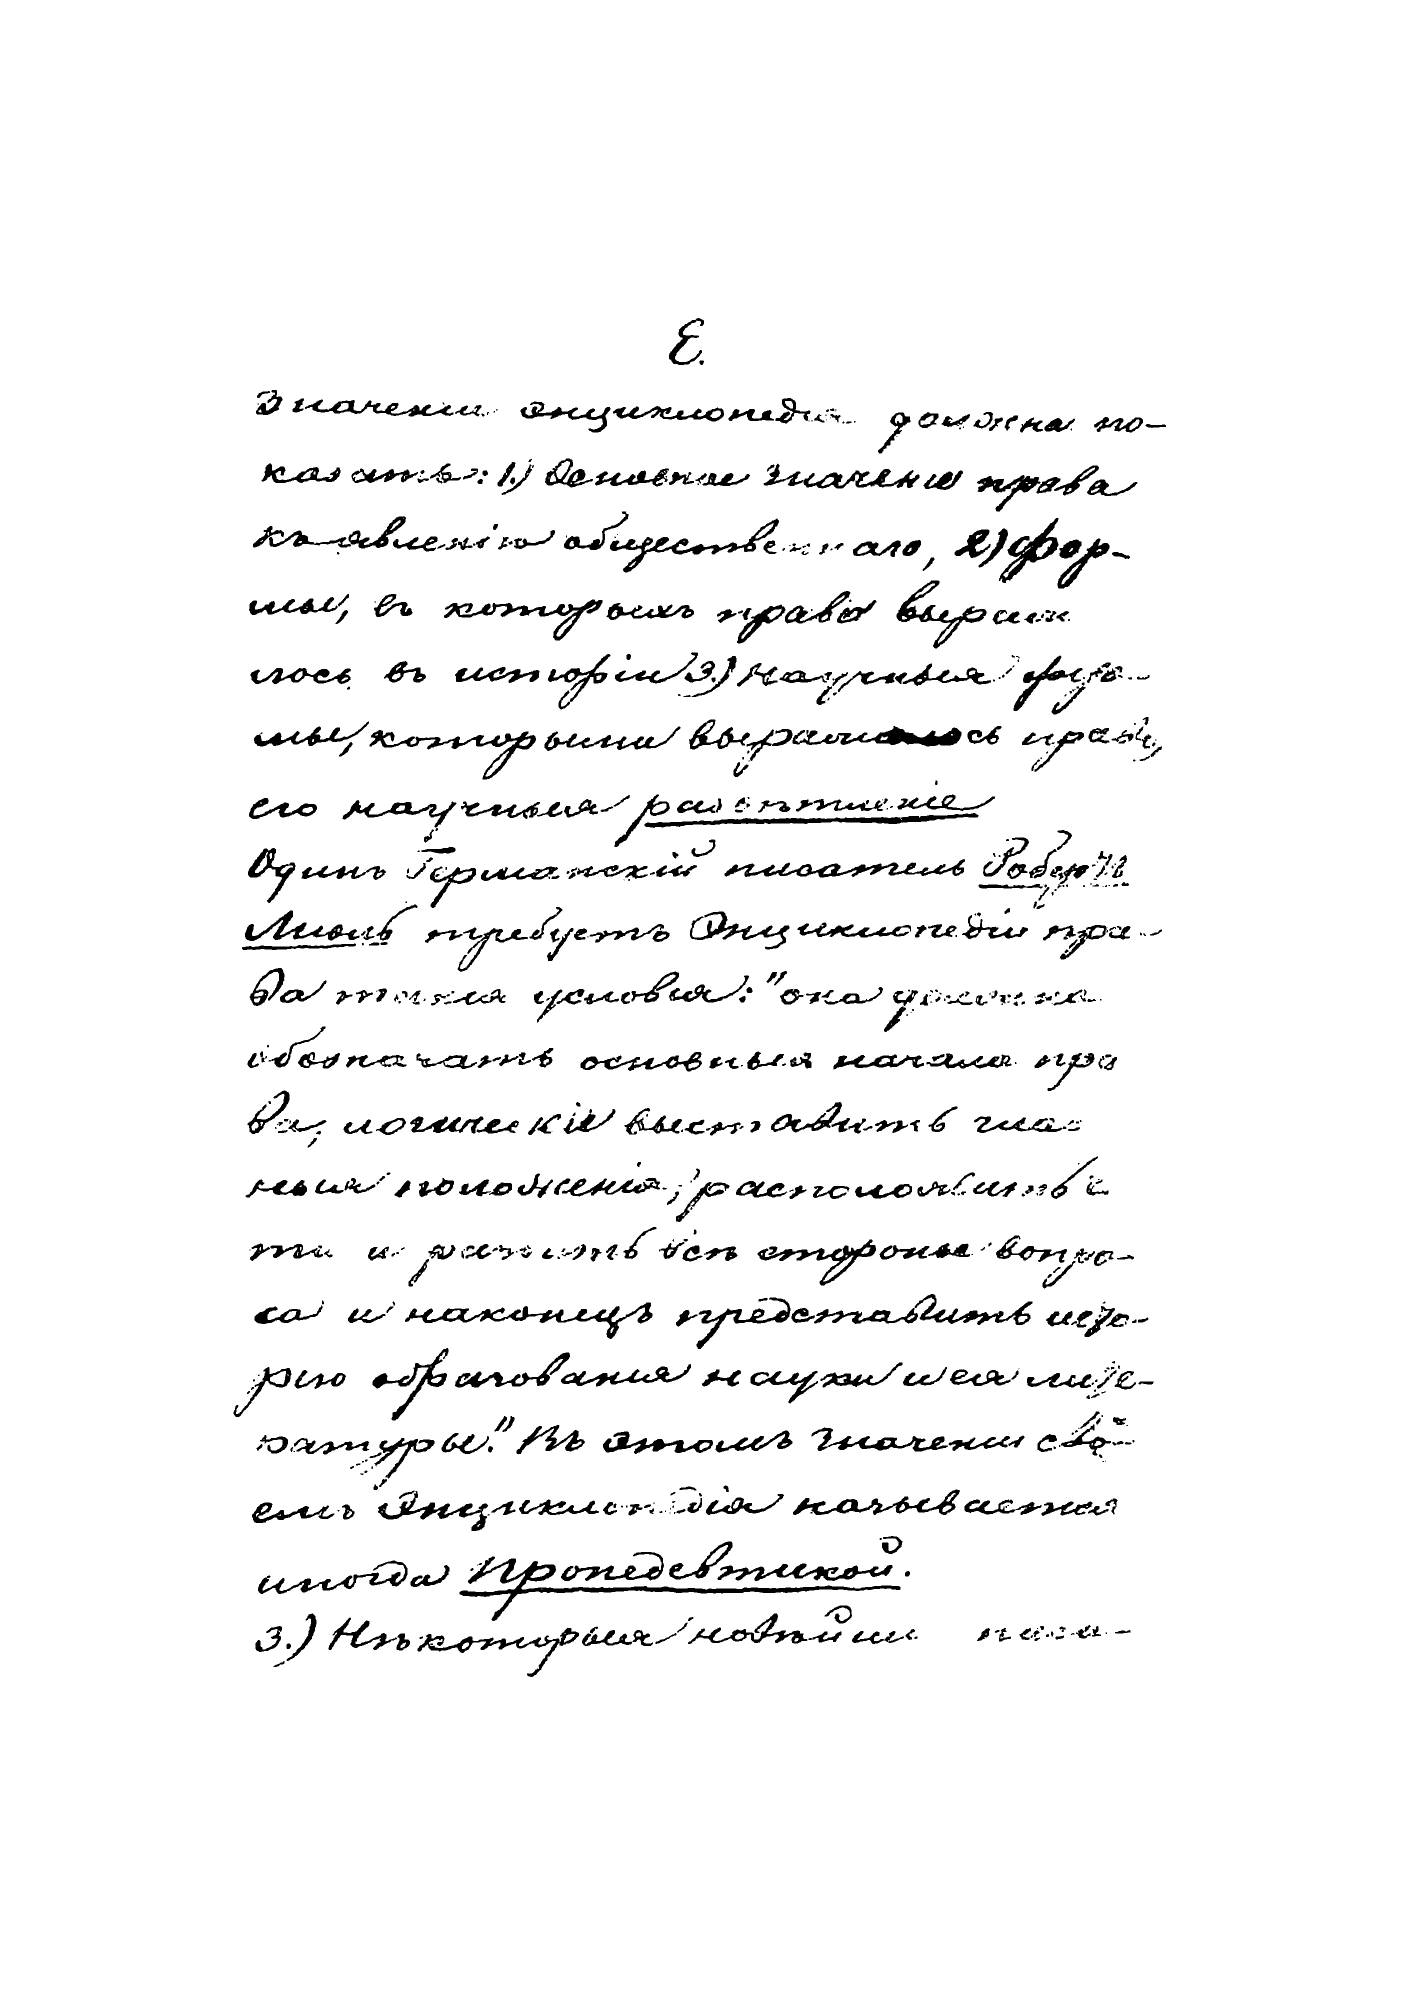 Е.
значеніи энциклопедія должна по-
казать: 1.) Основное значеніе права
къ явленію общественнаго, 2) фор-
мы, въ которыхъ право вырази
лось въ исторіи 3.) Научныя фор-
мы, которыми выражалось право,
его научныя развѣтвленіе
Одинъ Германскій писатель Робертъ
Моль требуетъ Энциклопедіи пра-
ва такія условія: "она должна
обозначать основныя начала пра
ва, логическіе выставить глав
ныя положенія, расположить с
ти и рѣшить всѣ стороны вопро-
са и наконецъ представить исто-
рію образованія науки и ея лите-
ратуры." Въ этомъ значеніи сво-
емъ Энциклопедія называется
иногда Пропедевтикой.
3.) Нѣкоторыя новѣйши писа-